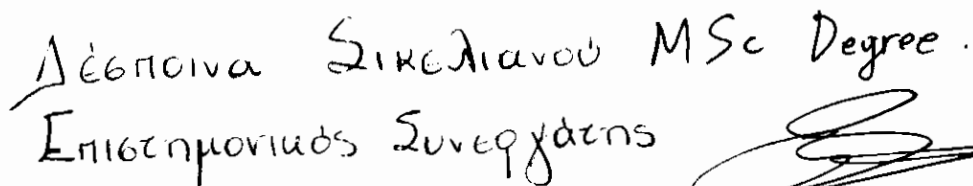 Δέσποινα Σικελιανού MSc Degree.
Επιστημονικός Συνεργάτης